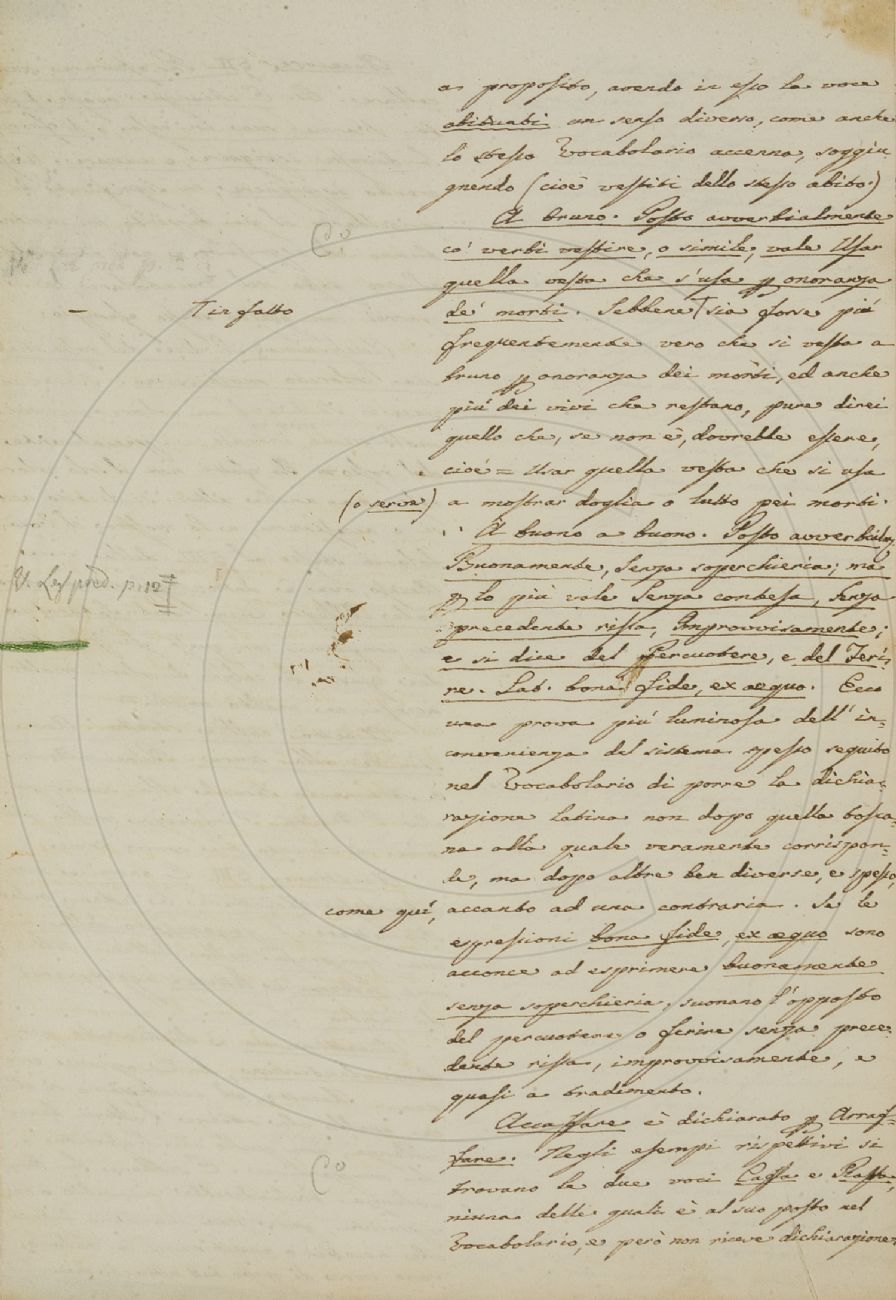 a proposito, avendo in esso la voce
abituati un senso diverso, come anche
lo stesso Vocabolario accenna, soggiu-
gnendo (cioè vestiti dello stesso abito.)
A bruno. Posto avverbialmente
Co
co' verbi vestire, o simile, vale Usar
quella vesta che s'usa p onoranza
de' morti. Sebbene T sia forse più
– T in fatto
frequentemente vero che si vesta a
bruno p onoranza dei morti, ed anche
più dei vivi che restano, pure direi
quello che, se non è, dovrebbe essere,
cioè = Usar quella vesta che si usa
(o serve) a mostrar doglia o lutto pei morti.
A buono a buono. Posto avverbialm.
Buonamente, Senza soperchieria; ma
V. Leg. pred. p. 12
p lo più vale Senza contesa, Senza
precedente rissa, Improvvisamente;
e si dice del Percuotere, e del Feri-
re. Lat. bona fide, ex aequo. Ecco
una prova più luminosa dell' in-
convenienza del sistema spesso seguito
nel Vocabolario di porre la dichia-
razione latina non dopo quella tosca-
na alla quale veramente corrispon-
de, ma dopo altre ben diverse, e spesso,
come quì, accanto ad una contraria. Se le
espressioni bona fide, ex æquo sono
acconce ad esprimere buonamente
senza soperchieria, suonano l'opposto
del percuotere o ferire senza prece-
dente rissa, improvvisamente, e
quasi a tradimento.
Accaffare è dichiarato p Arraf-
fare. Negli esempi rispettivi si
Co
trovano le due voci Caffa e Raffa,
niuna delle quali è al suo posto nel
Vocabolario, e però non riceve dichiarazione